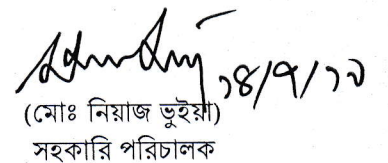 ১৪/৭/১০
(মোঃ নিয়াজ ভুইয়া)
সহকারি পরিচালক